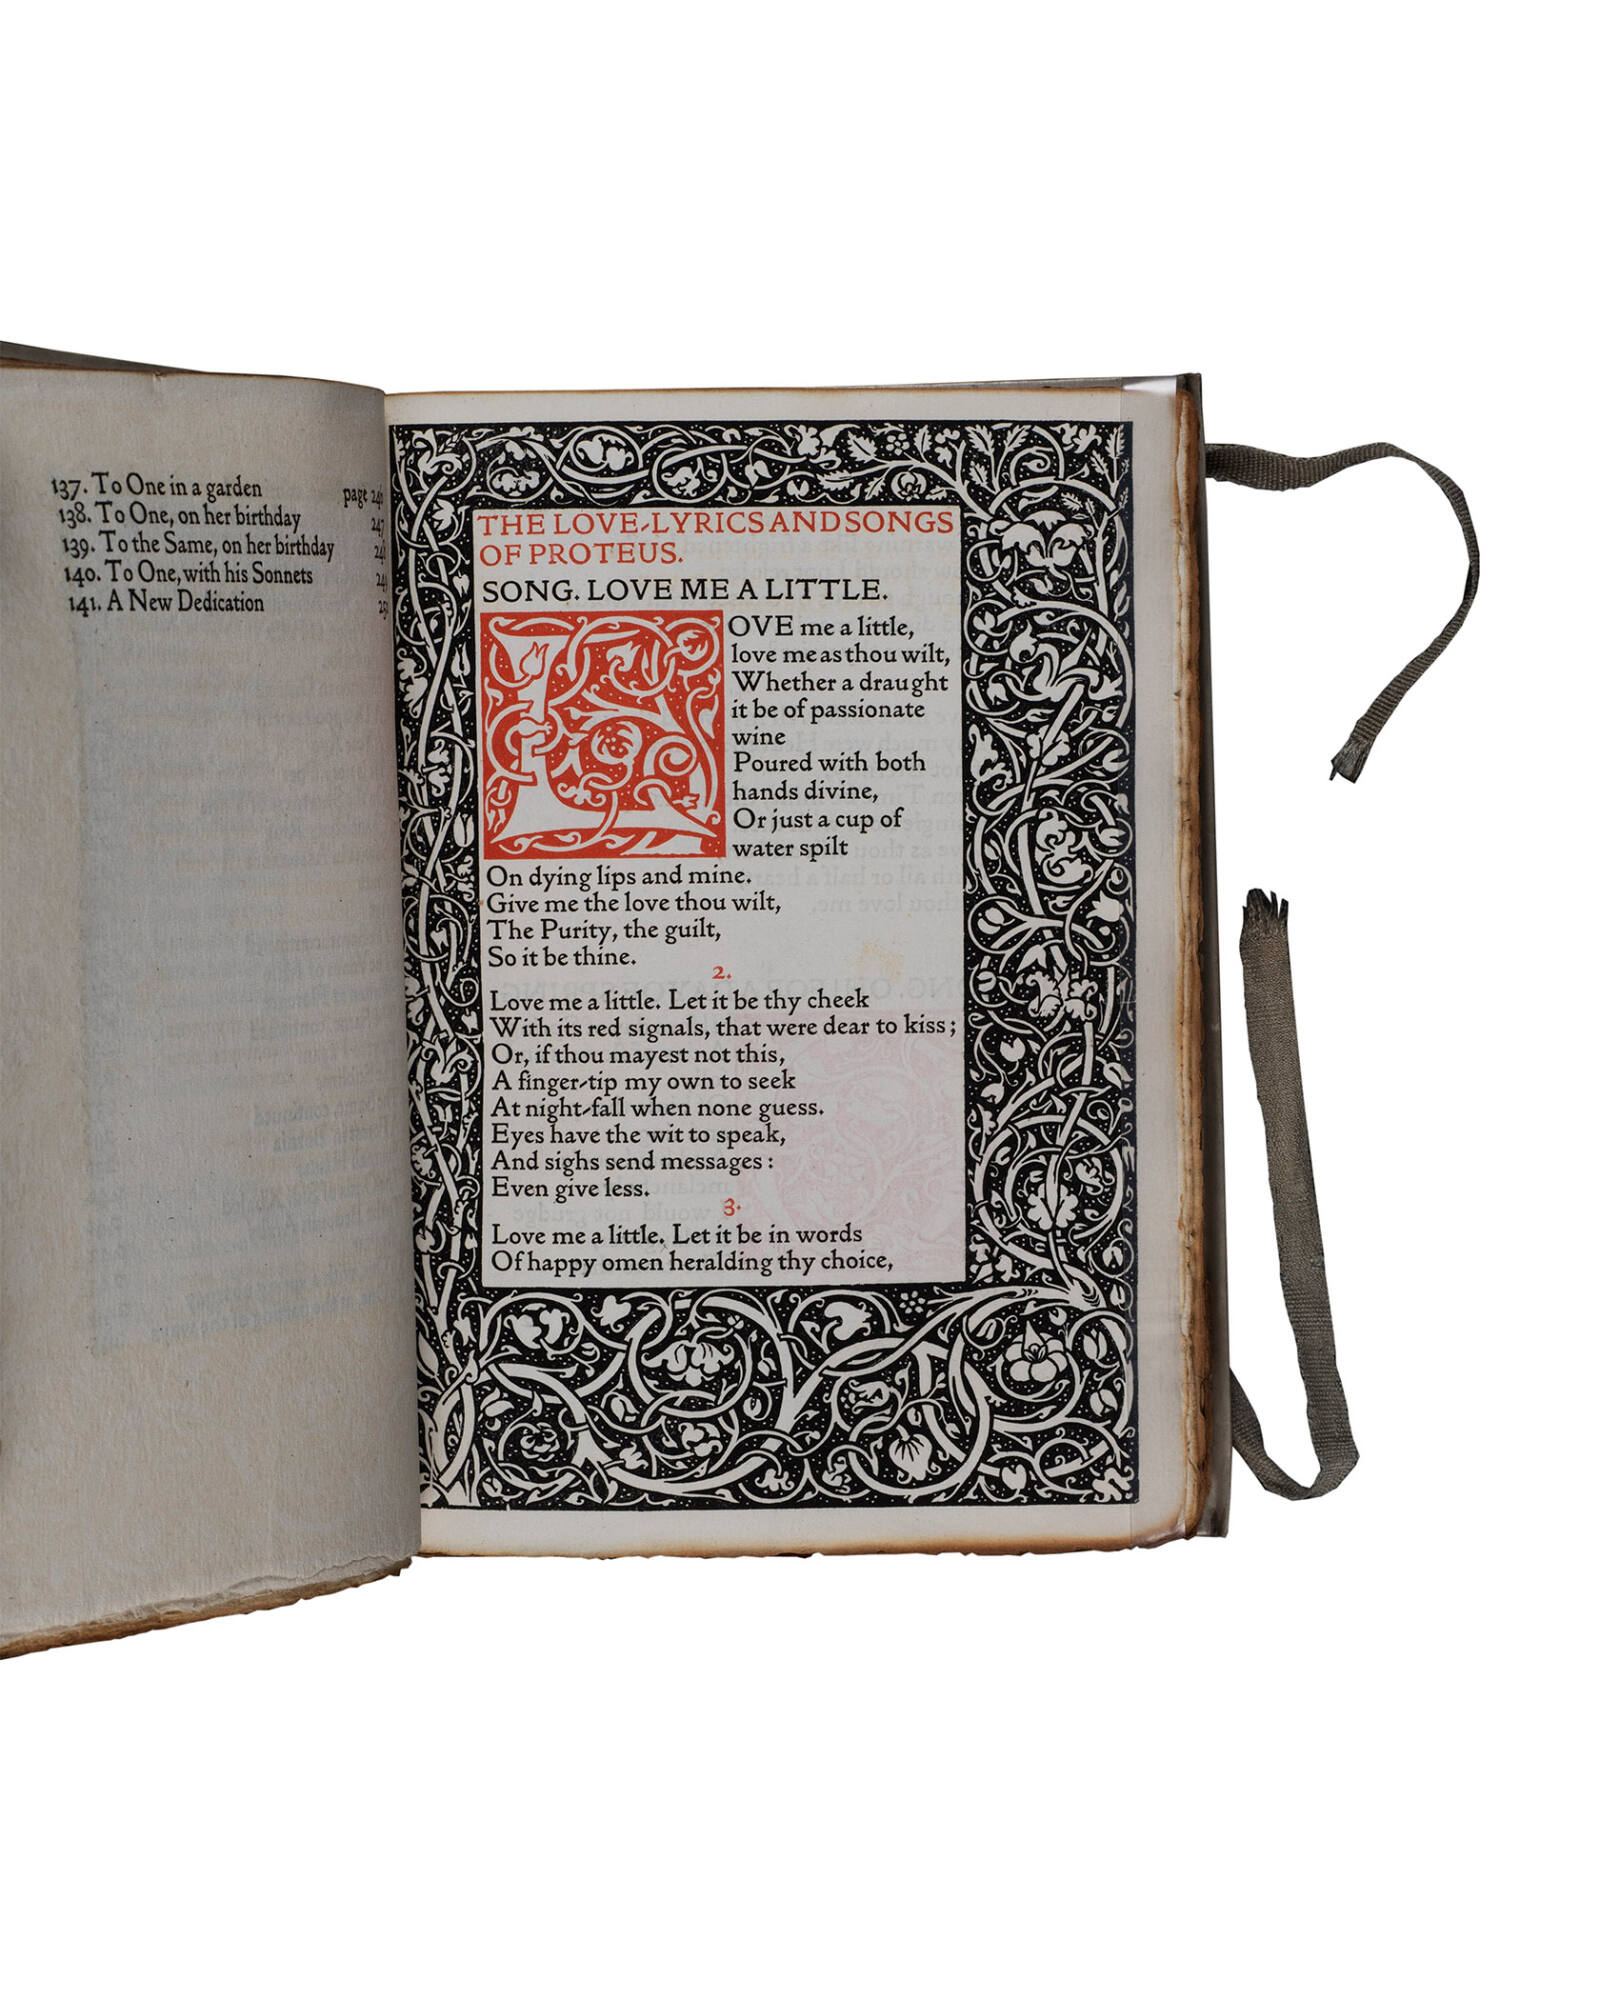 137. To One in a garden page
138. To One, on her birthday 247
139. To the Same, on her birthday
140. To One, with his Sonnets
141. A New Dedication
THE LOVE-LYRICS AND SONGS
OF PROTEUS.
SONG. LOVE ME A LITTLE.
LOVE me a little,
love me as thou wilt,
Whether a draught
it be of passionate
wine
Poured with both
hands divine,
Or just a cup of
water spilt
On dying lips and mine.
Give me the love thou wilt,
The Purity, the guilt,
So it be thine.
2.
Love me a little. Let it be thy cheek
With its red signals, that were dear to kiss;
Or, if thou mayest not this,
A finger-tip my own to seek
At night-fall when none guess.
Eyes have the wit to speak,
And sighs send messages:
Even give less.
3.
Love me a little. Let it be in words
Of happy omen heralding thy choice,